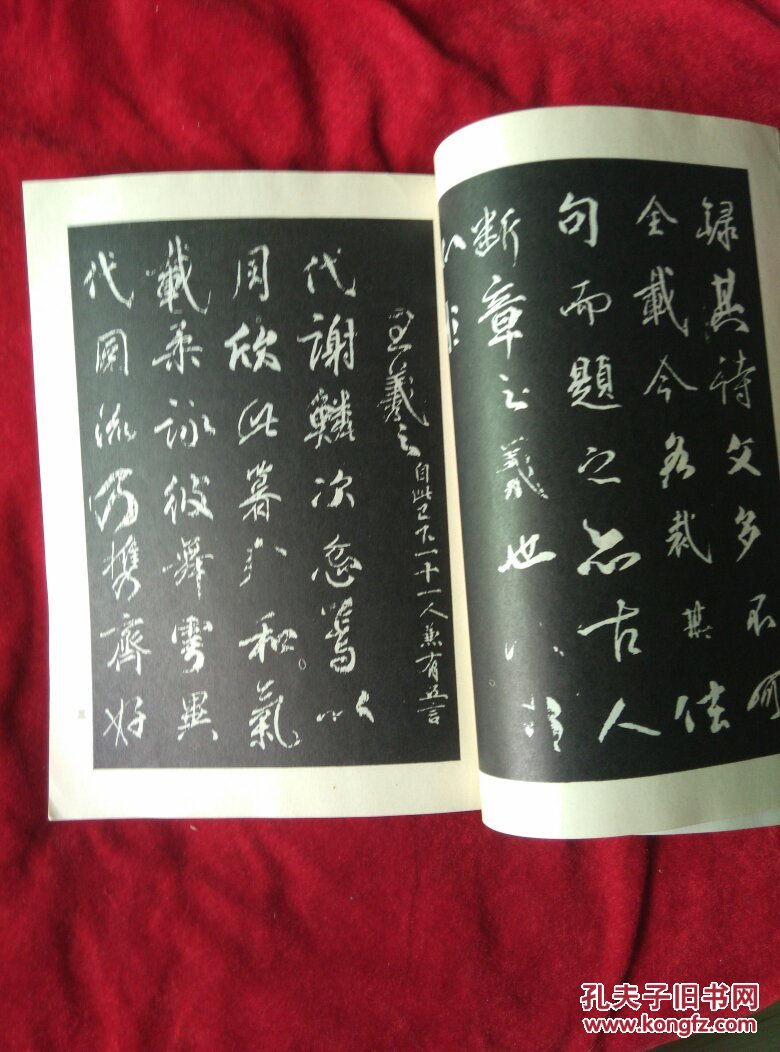 録其诗文多不可
全載今各裁其佳
句而題之亦古人
断章之義也
王羲之 自此已下一十一人兼有五言
代謝鱗次忽焉以
周欣此暮春和氣
載柔詠彼舞雩異
代同流乃携齊好
孔夫子旧书网
www.kongfz.com